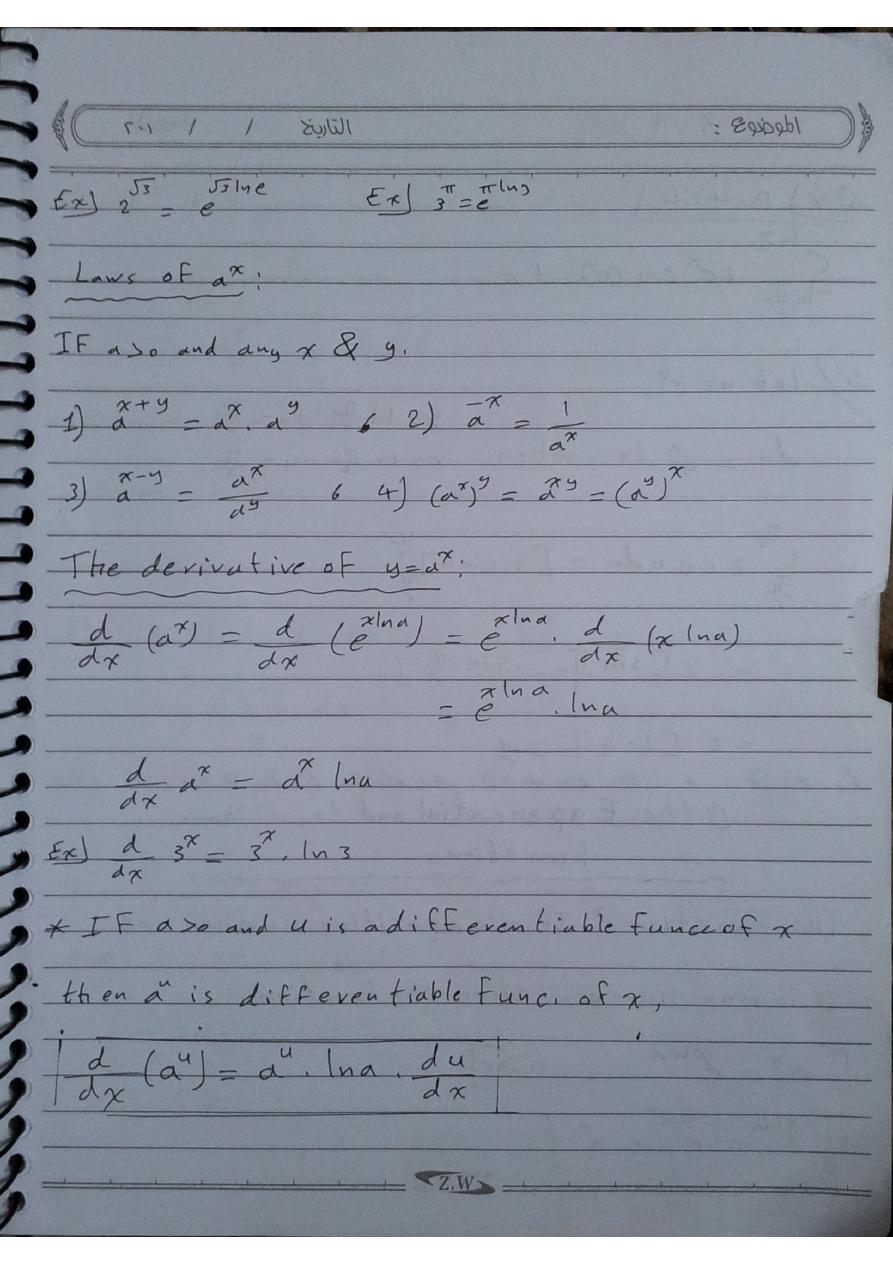 الموضوع : التاريخ / / ٢٠١
Ex] 2^√3 = e^(√3 ln e) Ex] 3^π = e^(π ln 3)
Laws of a^x :
IF a>0 and any x & y.
1) a^(x+y) = a^x . a^y , 2) a^(-x) = 1/a^x
3) a^(x-y) = a^x/a^y , 4) (a^x)^y = a^(xy) = (a^y)^x
The derivative of y=a^x :
d/dx (a^x) = d/dx (e^(x ln a)) = e^(x ln a) . d/dx (x ln a)
= e^(x ln a) . ln a
d/dx a^x = a^x ln a
Ex] d/dx 3^x = 3^x . ln 3
* IF a>0 and u is a differentiable func. of x
then a^u is differentiable func. of x,
d/dx (a^u) = a^u . ln a . du/dx
Z.W